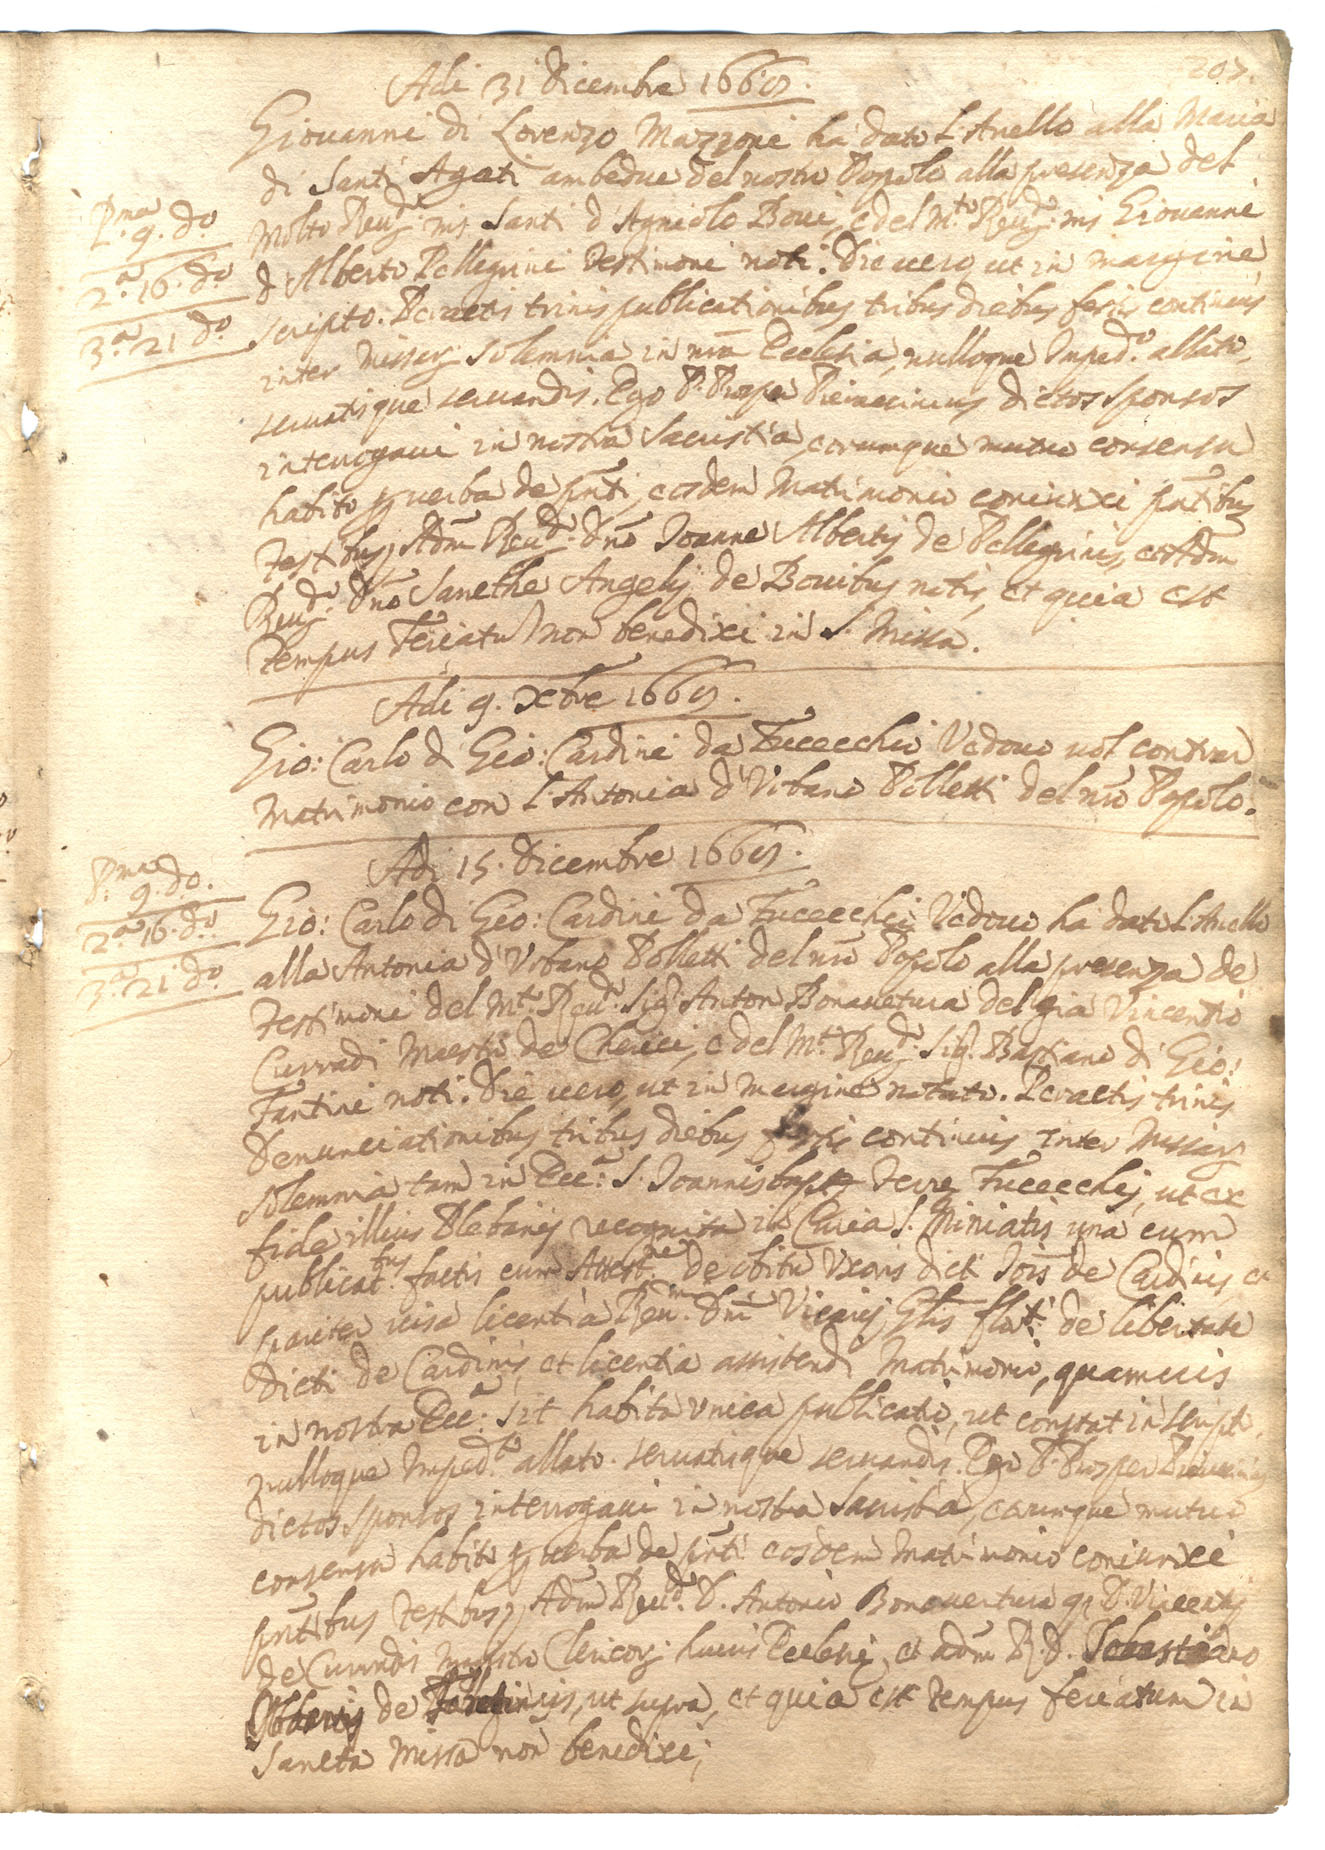 207.
Adi 31 Dicembre 1669.
Giouanni di Lorenzo Mazzoni ha dato l'Anello alla Maria
di Santi Agati ambedue del nostro Popolo alla presenza del
P.ma 9. d.o
Molto Reu.do ms Santi d'Agniolo Boui, e del M.to Reu.do ms Giouanni
2.a 16. d.o
d'Alberto Pellegrini testimoni noti. Die uero, ut in margine
3.a 21 d.o
scripto. Peractis trinis publicationibus tribus diebus festis continuis
inter missar: solemnia in nrã Ecclesia, nulloque Imped.to allato,
seruatisque seruandis. Ego P. Prosper dictos sponsos
interrogaui in nostra Sacristia, eorumque mutuo consensu
habito p uerba de pñti, eosdem Matrimonio coniunxi pñtibus
testibus, Adm Reu.do Dño Joanne Albertij de Pellegrinis, et Adm
Reu.do Dño Sancthe Angelij de Bouibus notis, et quia est
tempus feriatu non benedixi in S. Missa.
Adi 9. Xcbre 1669.
Gio: Carlo di Gio: Cardini da Fucecchio Vedouo uol contrar
Matrimonio con l'Antonia d'Vrbano Polletti del nrõ Popolo.
Adi 15. Dicembre 1669.
P.ma 9. d.o.
Gio: Carlo di Gio: Cardini da Fucecchio Vedouo ha dato l'Anello
2.a 16. d.o
alla Antonia d'Vrbano Polletti del nrõ Popolo alla presenza de
3.a 21 d.o
testimoni del M.to Reu.do Sig.r Anton Bonauetura del gia Vincentio
Curradi Maestro de Cherici, e del M.to Reu.do Sig.r Bastiano di Gio:
Fantini noti. Die uero, ut in margine notato. Peractis trinis
Denunciationibus tribus diebus festis continuis inter missar:
solemnia tam in Ecc.a S. Joannis bapte Terre Fucecchij, ut ex
fide illius Plebanij recognita in Curia S. Miniatis una cum
publicat.bus factis cum Attest.ne de obitu Vxoris dicti Jois de Cardinis et
pariter uisa licentia Reu.mi Dñi Vicarij Glis flot: de libertate
dicti de Cardinis, et licentia assistendi Matrimonio, quamuis
in nostra Ecc.a sit habita unica publicatio, ut constat in script.
nulloque Imped.to allato. seruatisque seruandis. Ego P. Prosper
dictos sponsos interrogaui in nostra Sacristia, eorunque mutuo
consensu habito p uerba de pñti eosdem Matrimonio coniunxi
pñtibus testibus, Adm Reu.do D. Antonio Bonauentura q D. Vincentij
de Curradis Magistro Clericor: huius Ecclesie, et adm R. D. Sebastiano
de ut supra, et quia est tempus feriatum in
Sancta Missa non benedixi;